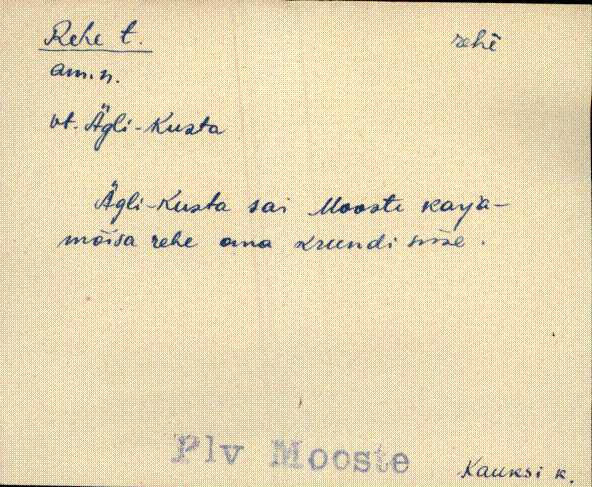 Rehe t. rehĕ
am.n.
vt. Ägli-Kusta
Ägli-Kusta sai Mooste karja-
mõisa rehe oma krundi sisse.
Plv Mooste
Kauksi k.